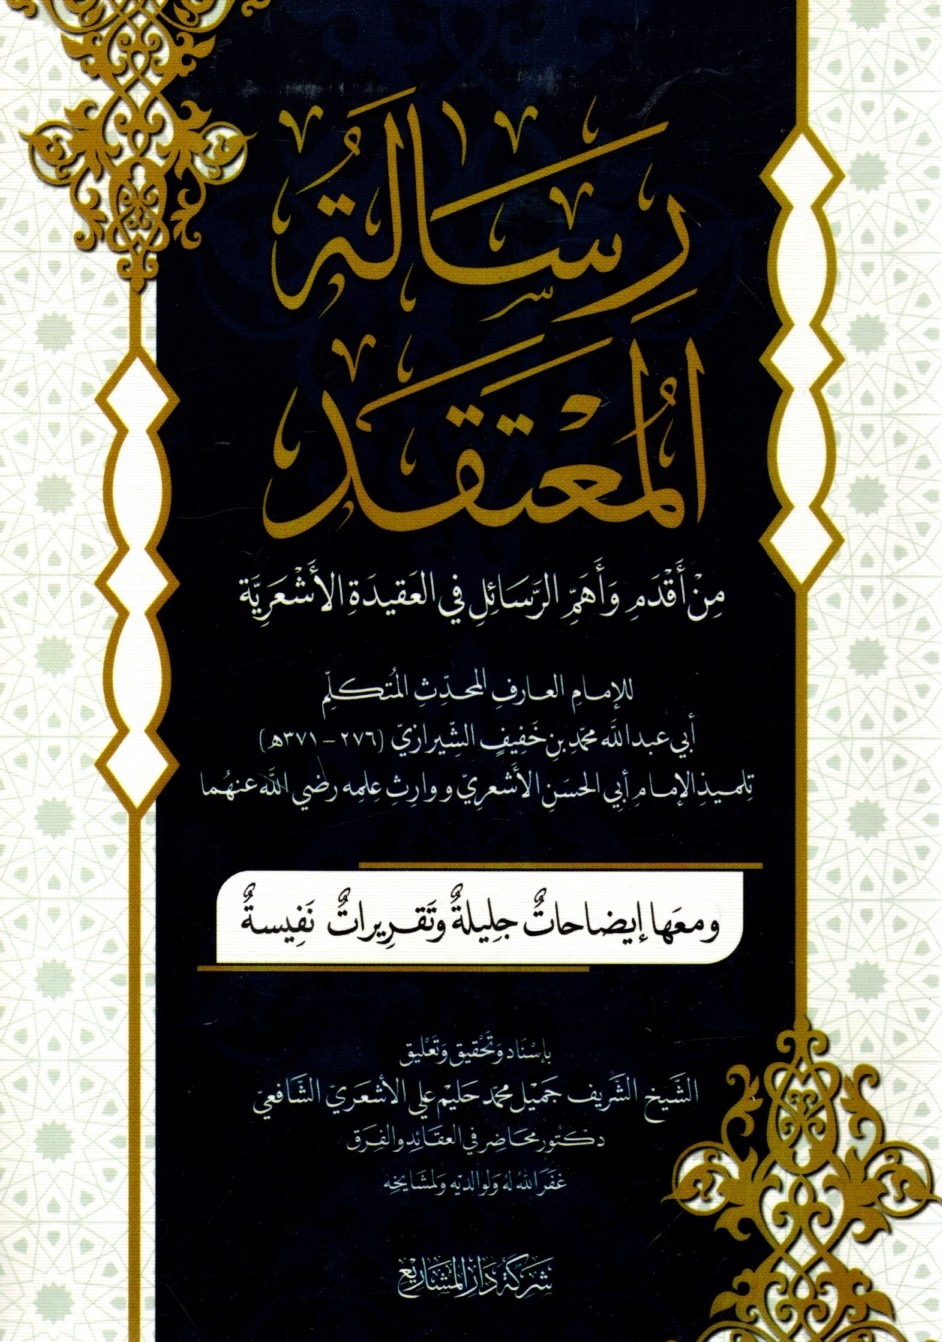 رِسَالَةُ
المُعْتَقَد
مِنْ أَقْدَمِ وَأَهَمِّ الرَّسَائِلِ فِي العَقِيدَةِ الأَشْعَرِيَّة
للإمامِ العارفِ المحدّثِ المُتكلّمِ
أبي عبد الله محمّدِ بنِ خَفِيفٍ الشّيرازيّ (٢٧٦ - ٣٧١هـ)
تلميذِ الإمامِ أبي الحسَنِ الأشعريّ ووارثِ علمِه رضي الله عنهُما
ومعَها إيضاحاتٌ جليلةٌ وتَقريراتٌ نَفِيسةٌ
بإسْناد وتَحْقيق وتَعْليق
الشَّيخ الشَّريف جَميل محمّد حَليم علي الأشعَريّ الشَّافعيّ
دكتور محَاضِر في العقَائِد والفِرَق
غفَر اللهُ له ولوالديه ولمشَايخِه
شركة دار المشاريع